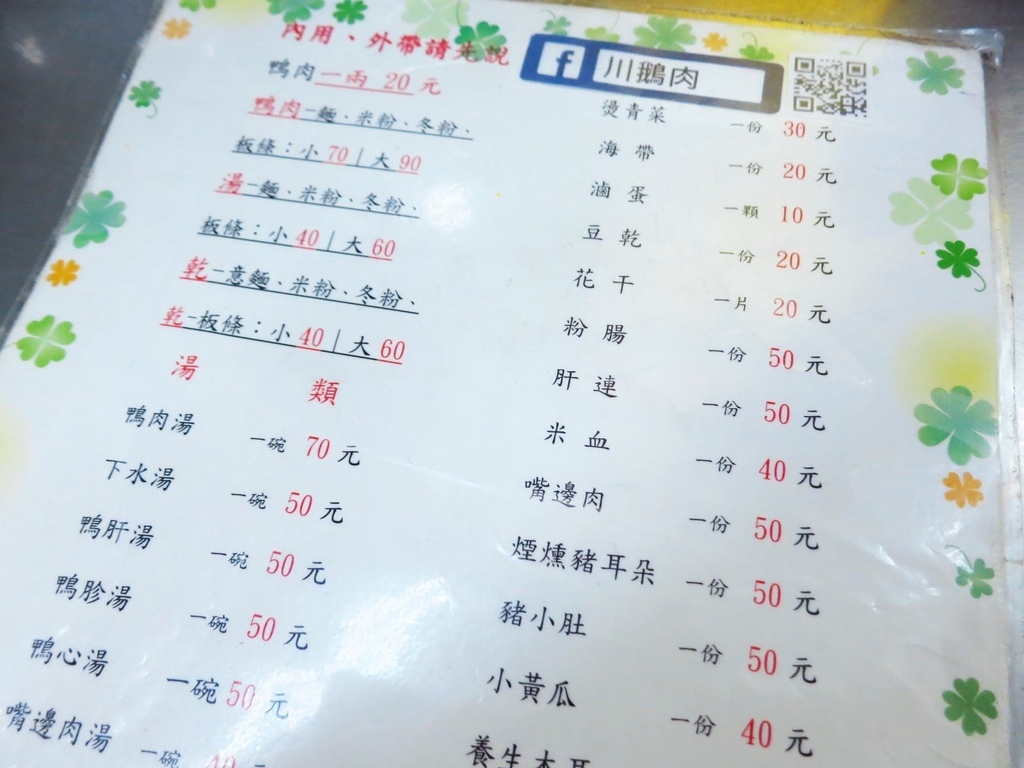 內用、外帶請先說
鴨肉一兩 20 元
鴨肉-麵、米粉、冬粉、
板條：小 70｜大 90
湯-麵、米粉、冬粉、
板條：小 40｜大 60
乾-意麵、米粉、冬粉、
乾-板條：小 40｜大 60
湯 類
鴨肉湯 一碗 70 元
下水湯 一碗 50 元
鴨肝湯 一碗 50 元
鴨胗湯 一碗 50 元
鴨心湯 一碗 50 元
嘴邊肉湯 一碗
f 川鵝肉
燙青菜 一份 30 元
海帶 一份 20 元
滷蛋 一顆 10 元
豆乾 一份 20 元
花干 一片 20 元
粉腸 一份 50 元
肝連 一份 50 元
米血 一份 40 元
嘴邊肉 一份 50 元
煙燻豬耳朵 一份 50 元
豬小肚 一份 50 元
小黃瓜 一份 40 元
養生木耳